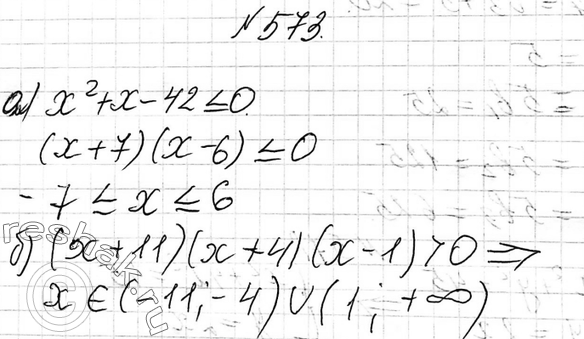 №573.
а) x²+x-42≤0.
(x+7)(x-6)≤0
-7≤x≤6
б) (x+11)(x+4)(x-1)>0 ⇒
x∈(-11;-4)∪(1;+∞)
reshak.ru